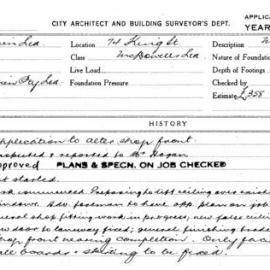 CITY ARCHITECT AND BUILDING SURVEYOR'S DEPT.
APPLICA
YEAR
Location 74 King St
Description
Class McDowells Ltd
Nature of Foundation
Live Load
Depth of Footings
Pty Ltd
Foundation Pressure
Checked by
£358
HISTORY
application to alter shop front
Inspected & reported to Mr Hogan
approved PLANS & SPECN. ON JOB CHECKED
not started.
work commenced. Preparing to lift ceiling over exist
windows. Adv. foreman to have app. plan on job
general shop fitting work in progress; new false ceilin
new door to laneway fixed; general finishing
shop front nearing completion. Only
all boards & skirting to be fixed.